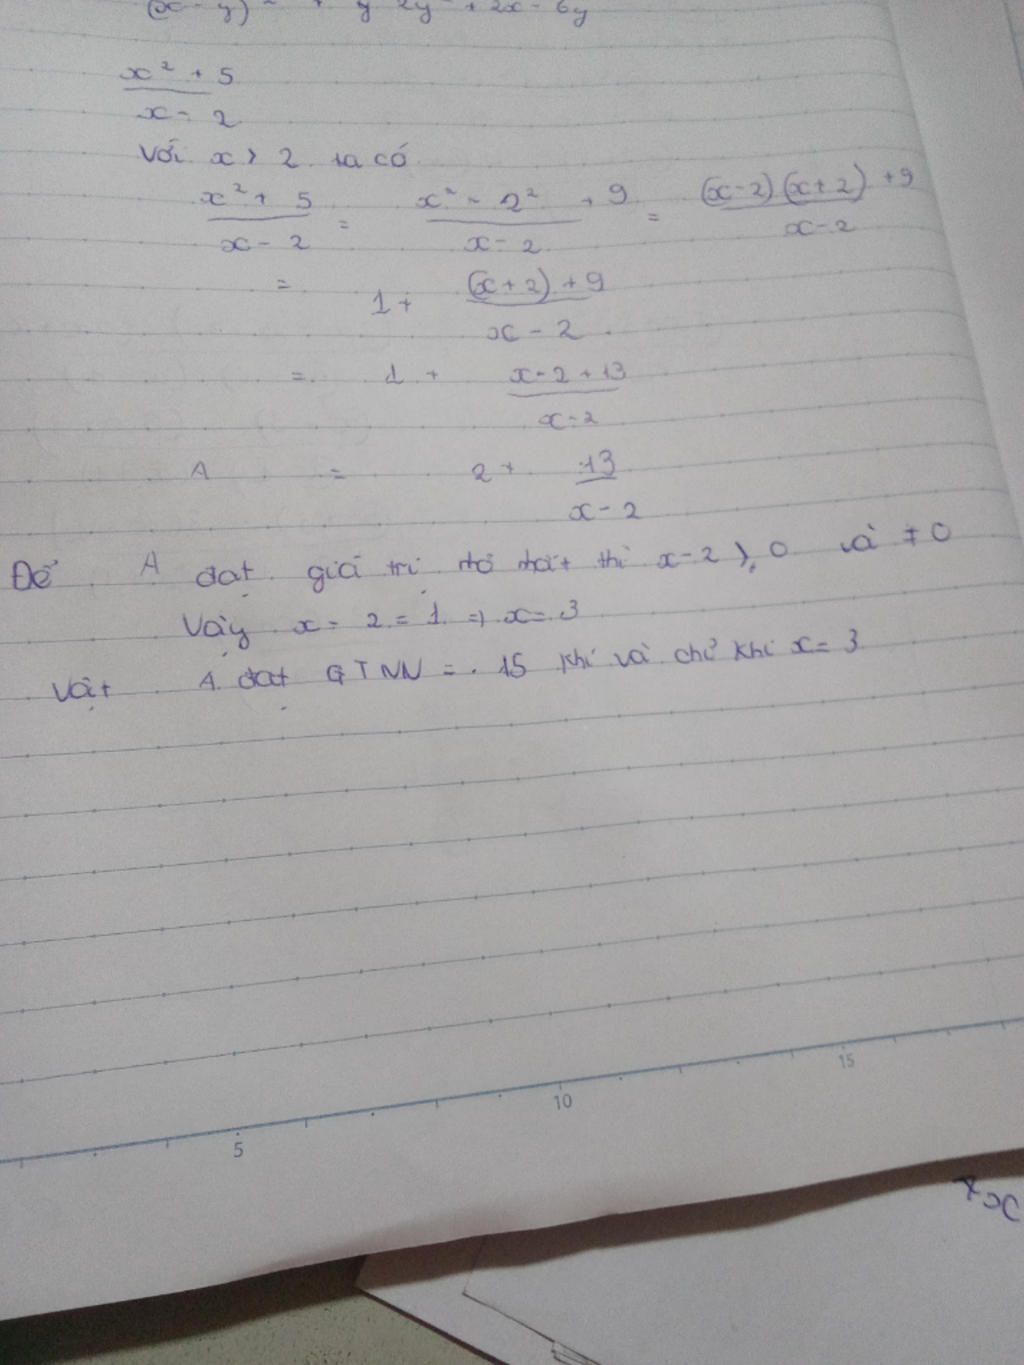 (x - y)² + y 2y + 2x - 6y
x² + 5 / x - 2
Với x > 2 ta có
x² + 5 / x - 2 = x² - 2² + 9 / x - 2 = (x-2)(x+2) + 9 / x-2
= 1 + (x+2) + 9 / x - 2
= 1 + x-2+13 / x-2
A = 2 + 13 / x - 2
Để A đạt giá trị nhỏ nhất thì x-2 ⩾ 0 và ≠ 0
Vậy x - 2 = 1 => x = 3
Vật A đạt GTNN = 15 khi và chỉ khi x = 3
5 10 15